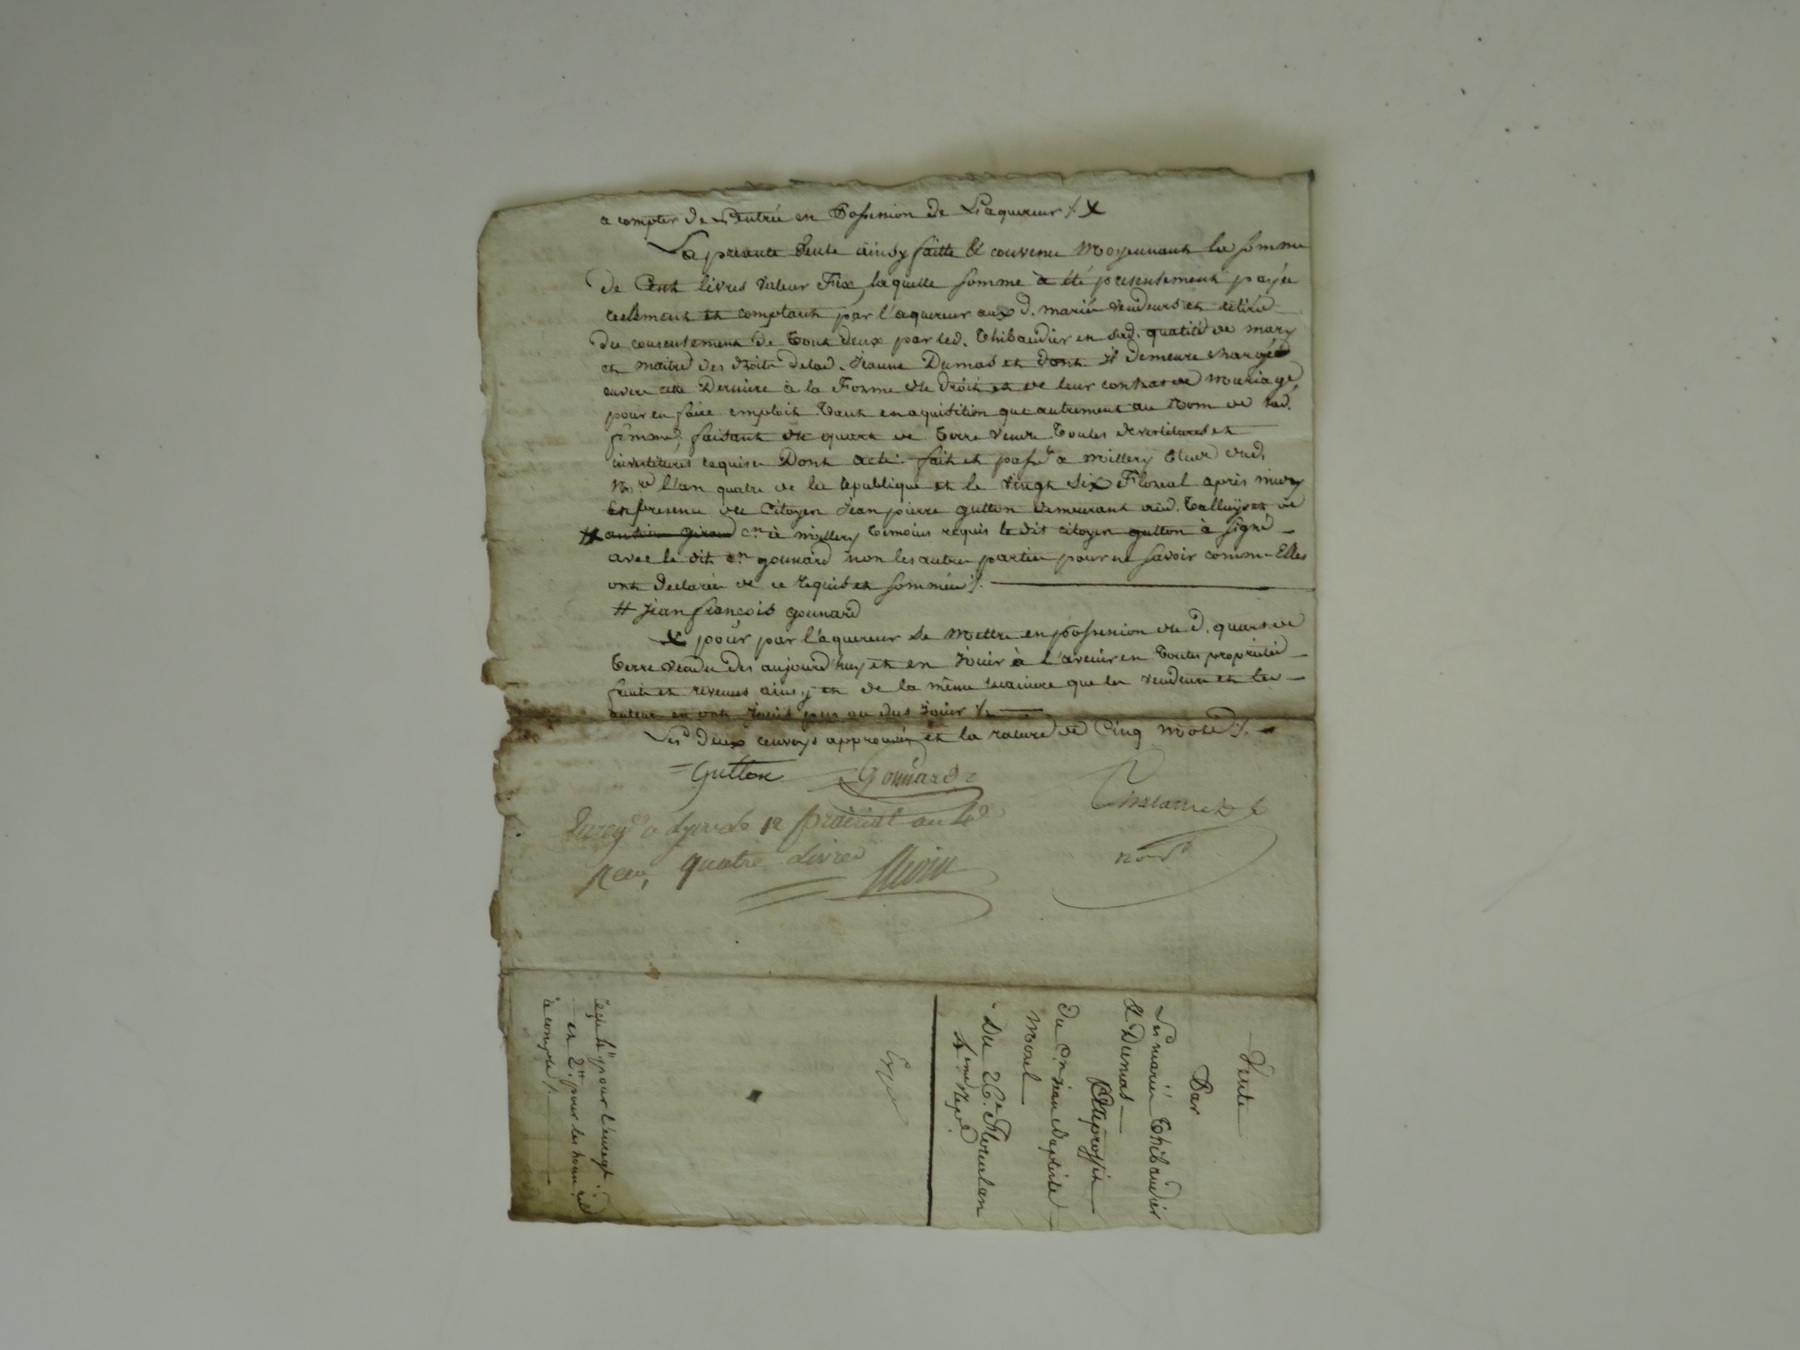 a compter de L'entrée en Possession de L'aquereur ⁒ X
La présente Vente ainsy faitte & convenue Moyennant la somme
de Cent livres valeur Fixe, laquelle somme a été presentement payée
reelement et comptant par l'aquereur aux d. mariés vendeurs et retirée
du consentement de Tout deux par led. Thibaudier en sad. qualité de mary
et maitre des droits delad. Jeanne Dumas et dont il demeure chargé
envers cette Derniere à la Forme de droit et de leur contrat de Mariage
pour en faire emploit tant en aquisition que autrement au Nom de sad.
femme, faisant de quart de Terre vendu Toutes devestitures et
investitures requises Dont acte. fait et passé a Millery Etude dud.
No.re l'an quatre de la republique et le vingt six Floreal après midy
En presence de Citoyen Jean pierre gutton demeurant aud. Talluyet de
# c.en à Millery Temoins requis le dit citoyen gutton à signé
avec le dit c.en gounard non les autres parties pour ne savoir comme Elles
ont declarées de ce requis et sommées ⁒
# Jean françois gounard
X pour par l'aquereur se Mettre en possession du d. quart de
Terre vendu des aujourd'huy et en Jouir à l'avenir en Toutes propriétés
fruits et revenus ainsy et de la même maniere que les vendeurs et les
auteurs en ont Jouit pus ou dus Jouir ⁒
Les deux renvoys approuvés et la rature de Cinq Mots ⁒
Gutton Gounard
Enreg.é a Lyon le 12 prairial an 4.e
Reçu quatre Livres
no.re
Vente
Par
Les mariés Thibaudier
& Dumas
Au proffit
du C.en Jean Baptiste
Morel
Du 26.e Floreal an
4.eme Rep.e
Exp
reçu 4# pour l'enregt.
et 2# pour les honn.
à compte ⁒